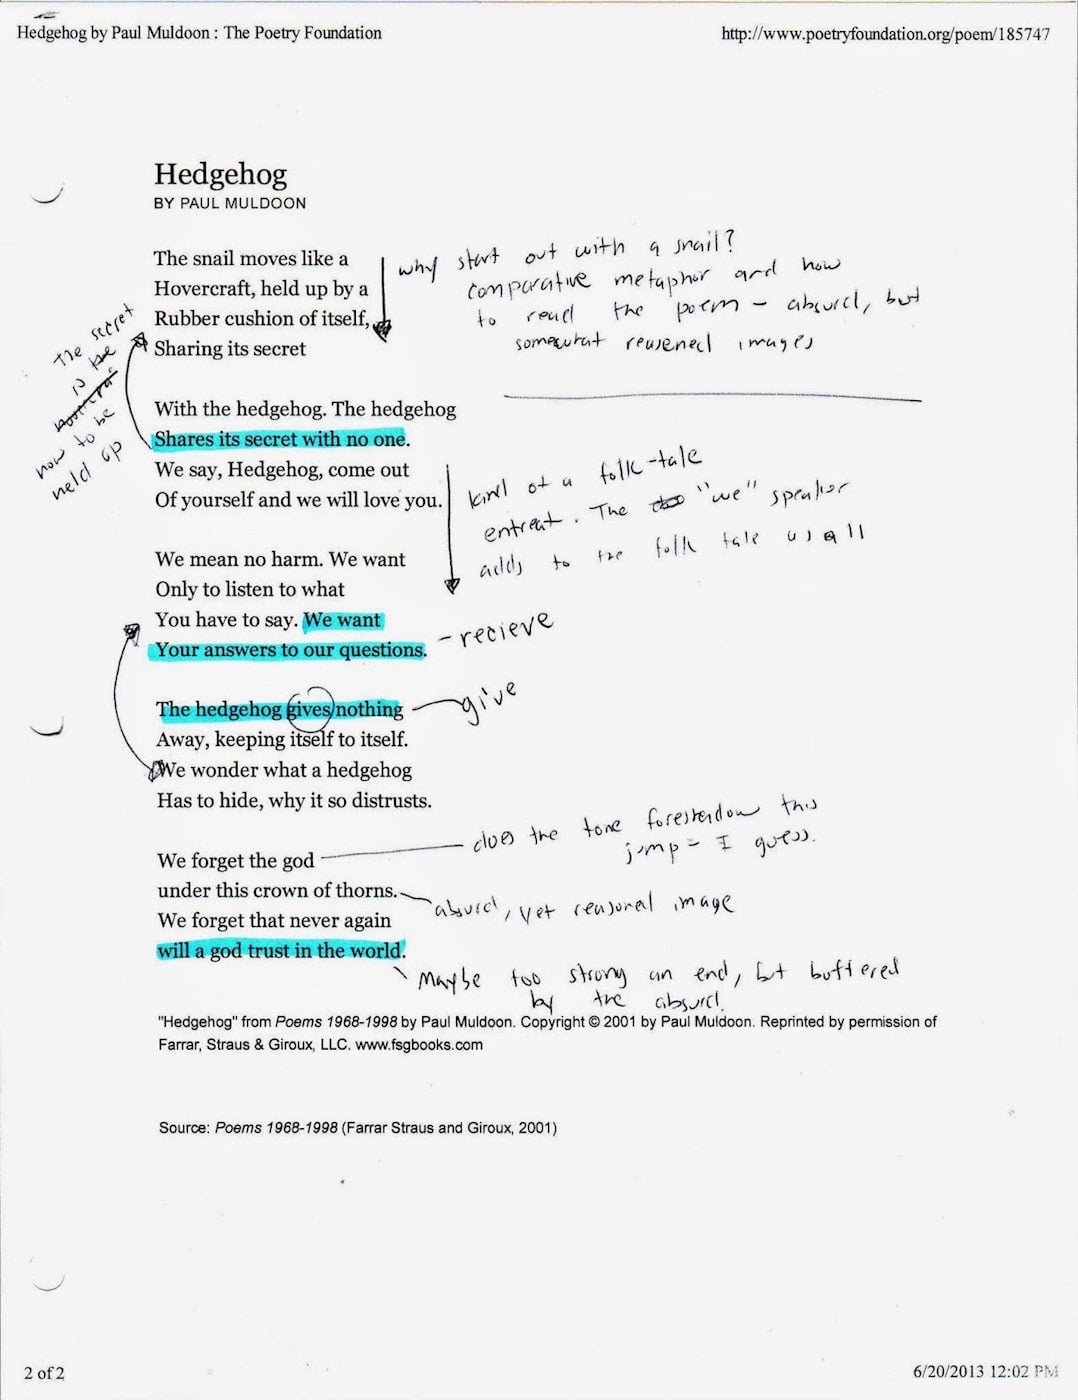 Hedgehog by Paul Muldoon : The Poetry Foundation
http://www.poetryfoundation.org/poem/185747
Hedgehog
BY PAUL MULDOON
The snail moves like a
Hovercraft, held up by a
Rubber cushion of itself,
Sharing its secret
why start out with a snail?
comparative metaphor and how
to read the poem – absurd, but
somewhat reasoned images
The secret
is
how to be
held up
With the hedgehog. The hedgehog
Shares its secret with no one.
We say, Hedgehog, come out
Of yourself and we will love you.
kind of a folk-tale
entreat. The "we" speaker
adds to the folk tale
We mean no harm. We want
Only to listen to what
You have to say. We want
Your answers to our questions.
– recieve
The hedgehog gives nothing
give
Away, keeping itself to itself.
We wonder what a hedgehog
Has to hide, why it so distrusts.
does the tone foreshadow this
jump – I guess.
We forget the god
under this crown of thorns.
absurd, yet reasoned image
We forget that never again
will a god trust in the world.
Maybe too strong an end, but buffered
by the absurd.
"Hedgehog" from Poems 1968-1998 by Paul Muldoon. Copyright © 2001 by Paul Muldoon. Reprinted by permission of
Farrar, Straus & Giroux, LLC. www.fsgbooks.com
Source: Poems 1968-1998 (Farrar Straus and Giroux, 2001)
2 of 2
6/20/2013 12:02 PM